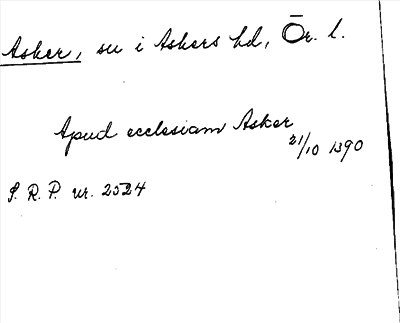 Asker, sn i Askers hd, Ör. l.
Apud ecclesiam Asker
21/10 1390
S. R. P. nr. 2524